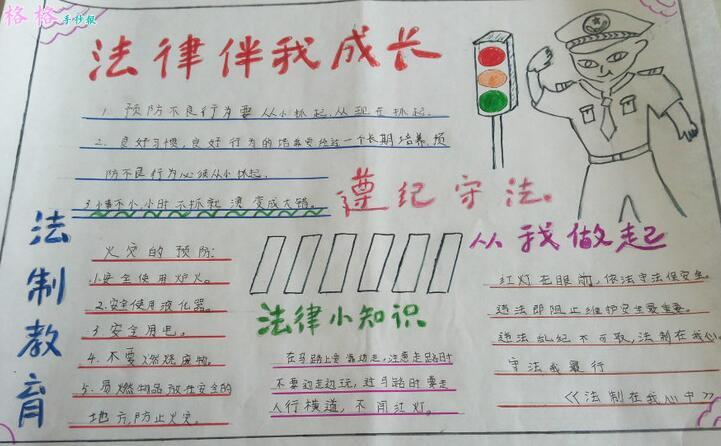 格格手抄报
法律伴我成长
1. 预防不良行为要从小抓起,从现在抓起.
2. 良好习惯,良好行为的培养要经过一个长期培养,预
防不良行为必须从小抓起.
3.小事不小,小时不抓就演变成大错.
遵纪守法.
从我做起
法制教育
火灾的预防:
1.安全使用炉火.
2.安全使用液化器.
3.安全用电.
4. 不要燃烧废物.
5. 易燃物品放在安全的
地方,防止火灾.
法律小知识
在马路上要靠边走,注意走路时
不要边走边玩,过马路时要走
人行横道,不闯红灯.
红灯在眼前,依法守法保安全.
违法即阻止维护安全最重要.
违法乱纪不可取,法制在我心
守法我最行
<<法制在我心中>>